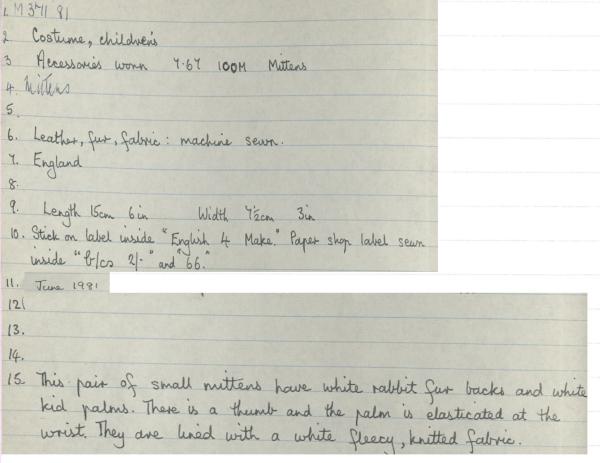 1. M 371 81
2 Costume, children's
3 Accessories worn 7.67 100M Mittens
4. Mittens
5.
6. Leather, fur, fabric : machine sewn.
7. England
8.
9. Length 15cm 6in Width 7½cm 3in
10. Stick on label inside "English 4 Make." Paper shop label sewn
inside "b/cs 2/-" and "66."
11. June 1981
12
13.
14.
15. This pair of small mittens have white rabbit fur backs and white
kid palms. There is a thumb and the palm is elasticated at the
wrist. They are lined with a white fleecy, knitted fabric.